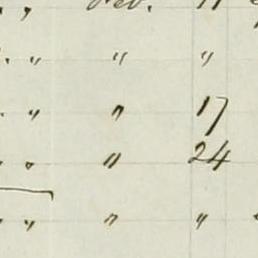 " Feb. 11
" " "
" " 17
" " 24
" " "